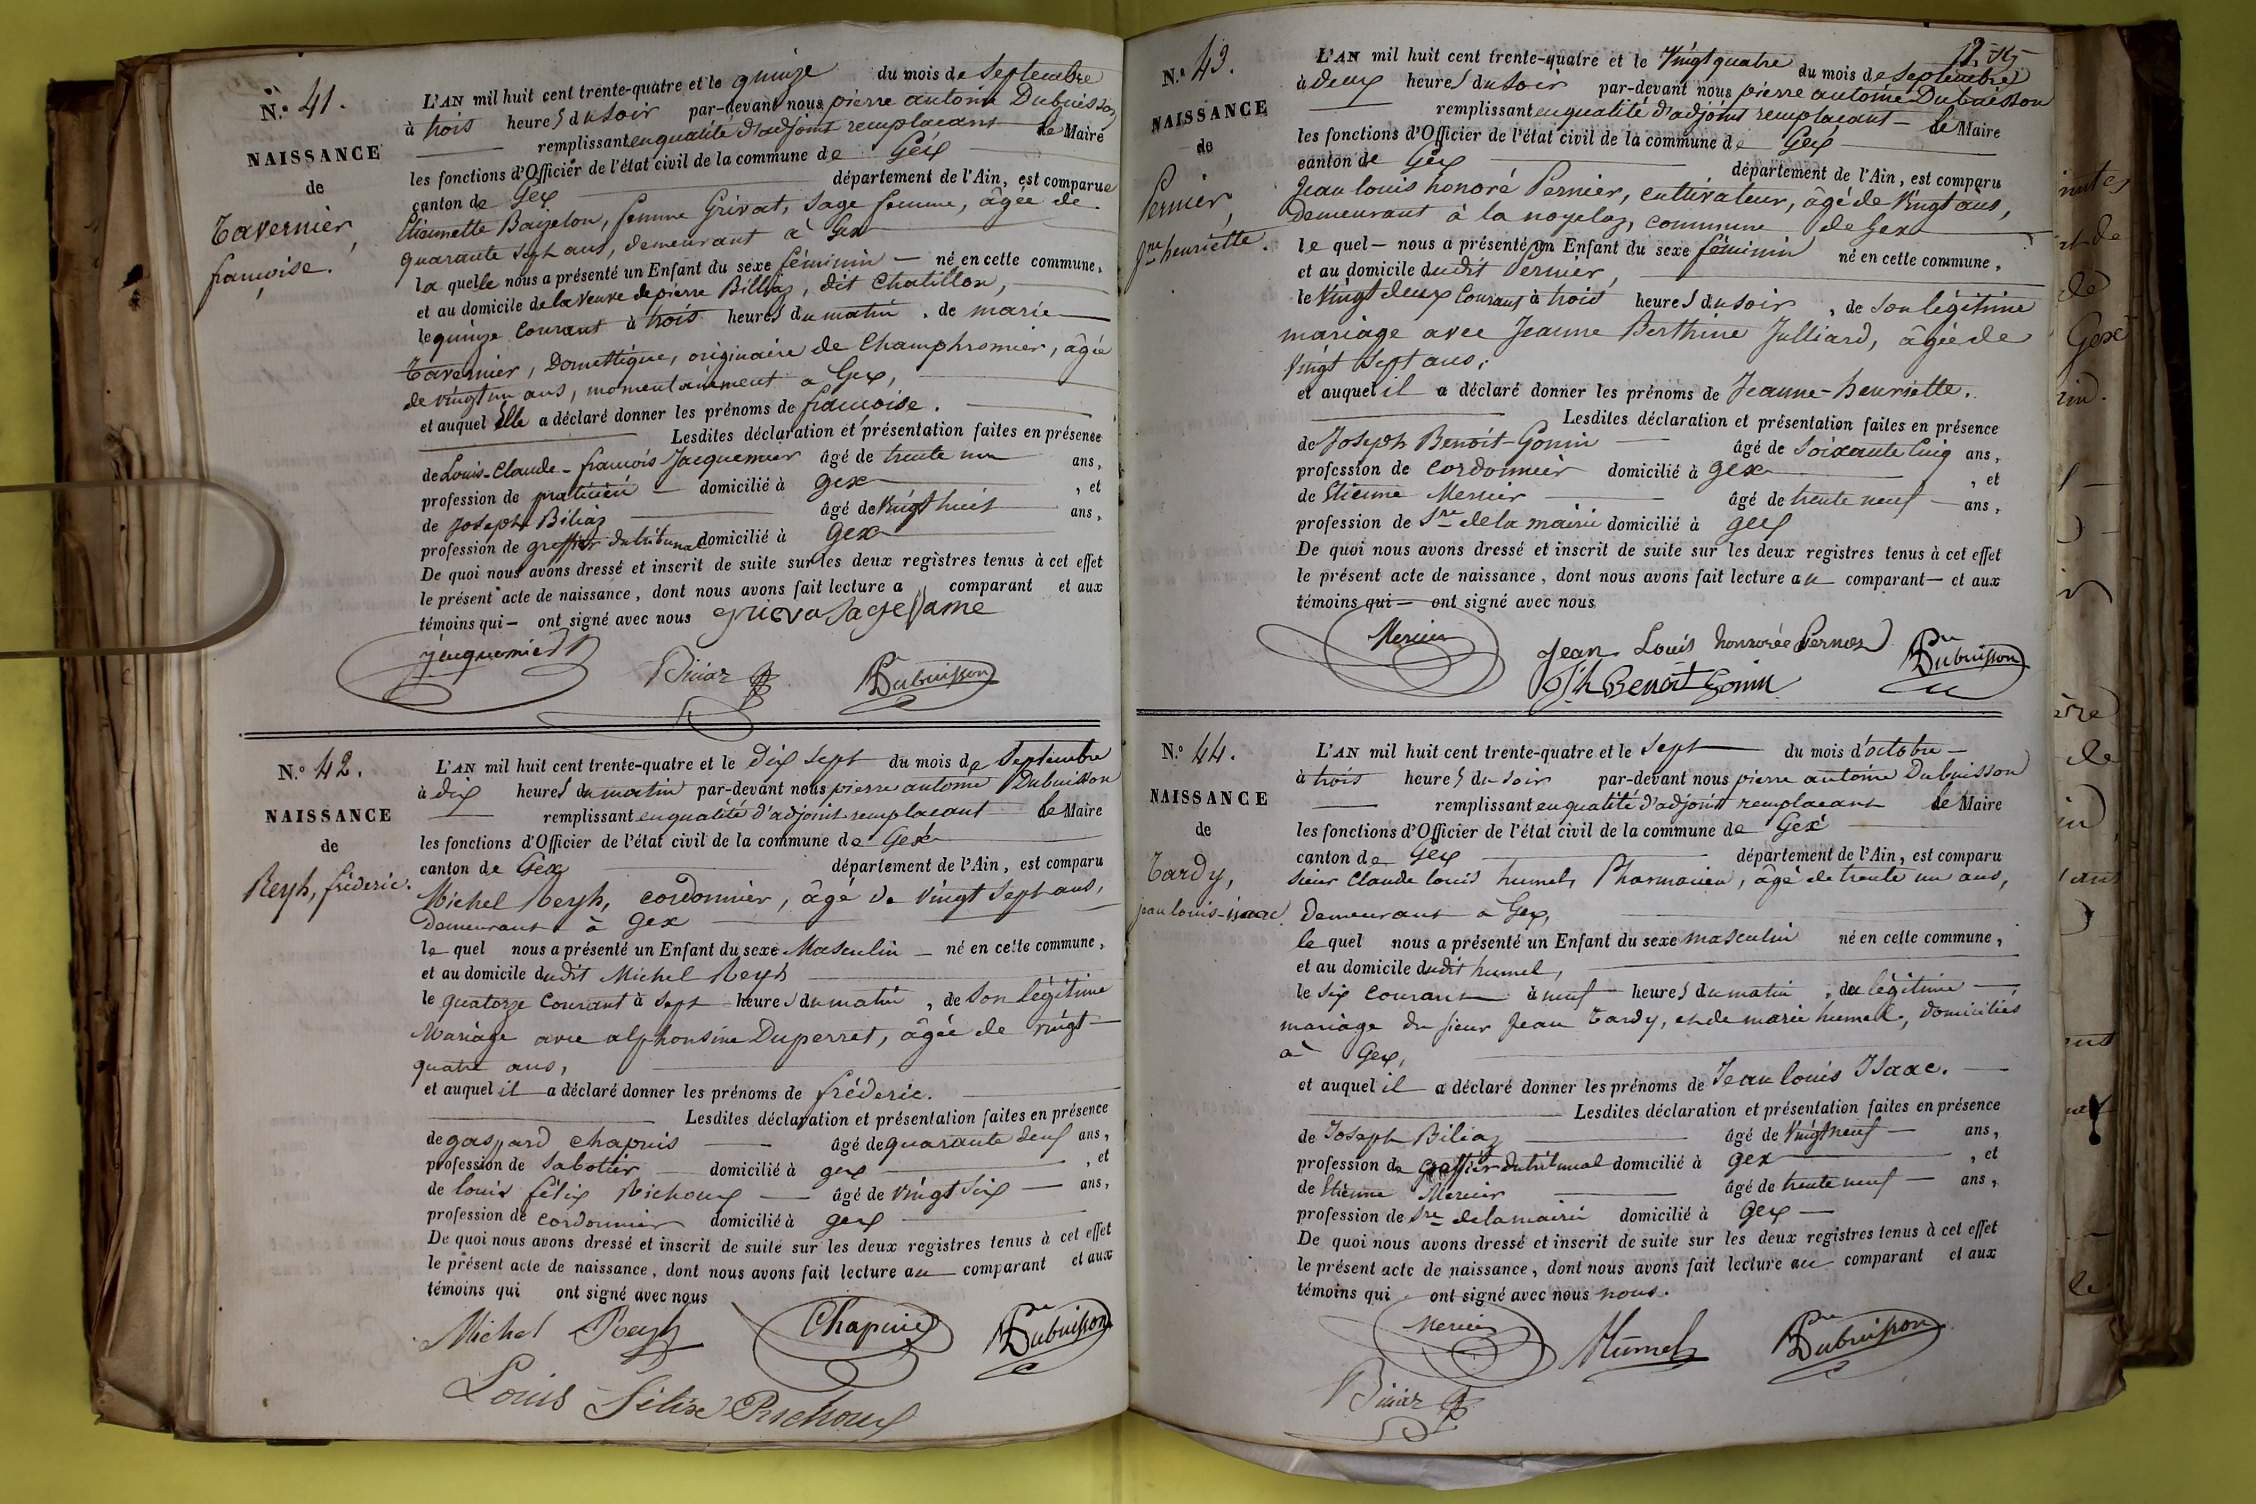 N.º 41.
NAISSANCE
de
Tavernier,
françoise.
L'AN mil huit cent trente-quatre et le quinze du mois de septembre
à trois heures du soir par-devant nous pierre antoine Dubuisson
remplissant en qualité d'adjoint remplaçant le Maire
les fonctions d'Officier de l'état civil de la commune de Gex
canton de Gex département de l'Ain, est comparue
Etiennette femme Grivat, sage femme, âgée de
quarante sept ans, demeurant à Gex
la quelle nous a présenté un Enfant du sexe féminin — né en cette commune,
et au domicile de la veuve de pierre Billiaz, dit Chatillon,
le quinze courant à trois heures du matin, de marie
Tavernier, Domestique, originaire de Champfromier, âgée
de vingt un ans, momentanément a Gex,
et auquel Elle a déclaré donner les prénoms de françoise.
Lesdites déclaration et présentation faites en présence
de Louis-Claude-françois Jacquemier âgé de trente un ans,
profession de praticien — domicilié à gex , et
de Joseph Biliaz âgé de vingt huit ans,
profession de greffier du tribunal domicilié à Gex
De quoi nous avons dressé et inscrit de suite sur les deux registres tenus à cet effet
le présent acte de naissance, dont nous avons fait lecture a comparant et aux
témoins qui — ont signé avec nous grieva sage dame
Jacquemier
Biliaz
Dubuisson
N.º 42.
NAISSANCE
de
Reyh, fréderic.
L'AN mil huit cent trente-quatre et le dix sept du mois de septembre
à dix heures du matin par-devant nous pierre antoine Dubuisson
remplissant en qualité d'adjoint remplaçant le Maire
les fonctions d'Officier de l'état civil de la commune de Gex
canton de Gex département de l'Ain, est comparu
Michel Reyh, cordonnier, âgé de vingt sept ans,
demeurant à gex
le quel nous a présenté un Enfant du sexe Masculin — né en cette commune,
et au domicile dudit Michel Reyh
le quatorze courant à sept heures du matin, de son légitime
Mariage avec alphonsine Duperret, âgée de vingt
quatre ans,
et auquel il a déclaré donner les prénoms de fréderic.
Lesdites déclaration et présentation faites en présence
de gaspard chapuis âgé de quarante deux ans,
profession de sabotier domicilié à gex , et
de louis félix Richoux âgé de vingt six ans,
profession de cordonnier domicilié à gex
De quoi nous avons dressé et inscrit de suite sur les deux registres tenus à cet effet
le présent acte de naissance, dont nous avons fait lecture au comparant et aux
témoins qui ont signé avec nous
Michel Reyh Chapuis Dubuisson
Louis Félix Richoux
N.º 43.
NAISSANCE
de
Pernier,
Jne henriette.
L'AN mil huit cent trente-quatre et le vingt quatre du mois de septembre
à deux heures du soir par-devant nous pierre antoine Dubuisson
remplissant en qualité d'adjoint remplaçant — le Maire
les fonctions d'Officier de l'état civil de la commune de Gex
canton de Gex département de l'Ain, est comparu
Jean louis honoré Pernier, cultivateur, âgé de vingt ans,
demeurant à la commune de Gex
le quel — nous a présenté un Enfant du sexe féminin né en cette commune,
et au domicile dudit Pernier,
le vingt deux courant à trois heures du soir, de son légitime
mariage avec Jeanne Berthine Julliard, âgée de
vingt sept ans,
et auquel il a déclaré donner les prénoms de Jeanne-henriette.
Lesdites déclaration et présentation faites en présence
de Joseph Benoit-Gonin âgé de soixante cinq ans,
profession de cordonnier domicilié à gex , et
de Etienne Mercier âgé de trente neuf ans,
profession de Sre de la mairie domicilié à gex
De quoi nous avons dressé et inscrit de suite sur les deux registres tenus à cet effet
le présent acte de naissance, dont nous avons fait lecture au comparant — et aux
témoins qui — ont signé avec nous
Mercier Jean Louis honorée Pernier Dubuisson
Jh Benoit Gonin
N.º 44.
NAISSANCE
de
Tardy,
jean louis-isaac
L'AN mil huit cent trente-quatre et le sept du mois d'octobre —
à trois heures du soir par-devant nous pierre antoine Dubuisson
remplissant en qualité d'adjoint remplaçant le Maire
les fonctions d'Officier de l'état civil de la commune de Gex
canton de Gex département de l'Ain, est comparu
sieur Claude louis humel, Pharmacien, âgé de trente un ans,
demeurant à Gex,
le quel nous a présenté un Enfant du sexe masculin né en cette commune,
et au domicile dudit humel,
le six courant à neuf heures du matin, du légitime
mariage du sieur Jean Tardy, et de marie humel, domiciliés
à Gex,
et auquel il a déclaré donner les prénoms de Jean louis Isaac.
Lesdites déclaration et présentation faites en présence
de Joseph Biliaz âgé de vingt neuf ans,
profession de greffier du tribunal domicilié à gex , et
de Etienne Mercier âgé de trente neuf — ans,
profession de Sre de la mairie domicilié à Gex —
De quoi nous avons dressé et inscrit de suite sur les deux registres tenus à cet effet
le présent acte de naissance, dont nous avons fait lecture au comparant et aux
témoins qui ont signé avec nous nous.
Mercier Humel Dubuisson
Biliaz